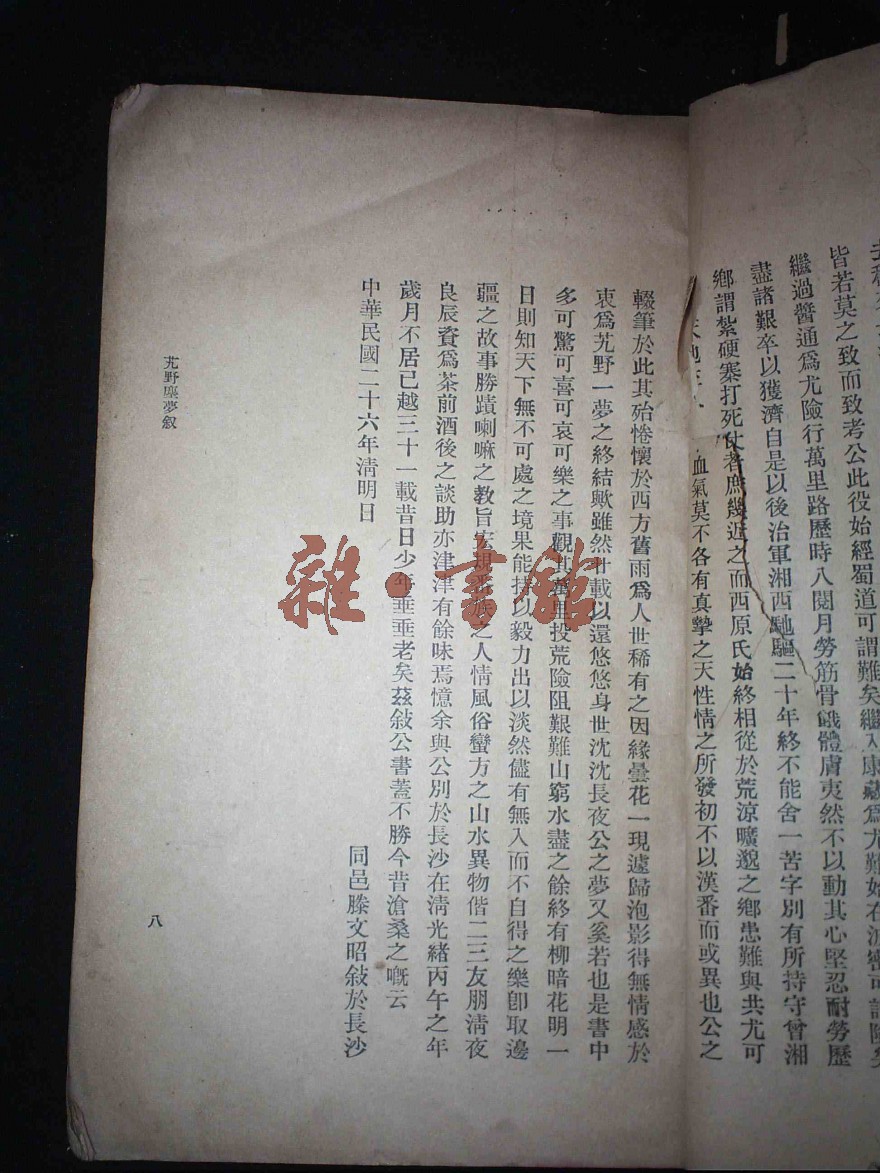 皆若莫之致而致考公此役始經蜀道可謂難矣繼入康藏爲尤難始在波密可謂險矣
繼過醬通爲尤險行萬里路歷時八閱月勞筋骨餓體膚夷然不以動其心堅忍耐勞歷
盡諸艱卒以獲濟自是以後治軍湘西馳驅二十年終不能舍一苦字別有所持守曾湘
鄉謂紮硬寨打死仗者庶幾近之而西原氏始終相從於荒涼曠邈之鄉患難與共尤可
血氣莫不各有真摯之天性情之所發初不以漢番而或異也公之
輟筆於此其殆惓懷於西方舊雨爲人世稀有之因緣曇花一現遽歸泡影得無情感於
衷爲艽野一夢之終結歟雖然廿載以還悠悠身世沈沈長夜公之夢又奚若也是書中
多可驚可喜可哀可樂之事觀其萬里投荒險阻艱難山窮水盡之餘終有柳暗花明一
日則知天下無不可處之境果能持以毅力出以淡然儘有無入而不自得之樂卽取邊
疆之故事勝蹟喇嘛之教旨宏規番族之人情風俗蠻方之山水異物偕二三友朋淸夜
良辰資爲茶前酒後之談助亦津津有餘味焉憶余與公別於長沙在淸光緒丙午之年
歲月不居已越三十一載昔日少年垂垂老矣茲敍公書蓋不勝今昔滄桑之嘅云
中華民國二十六年淸明日
同邑滕文昭敍於長沙
艽野塵夢敍
八
雜·書館